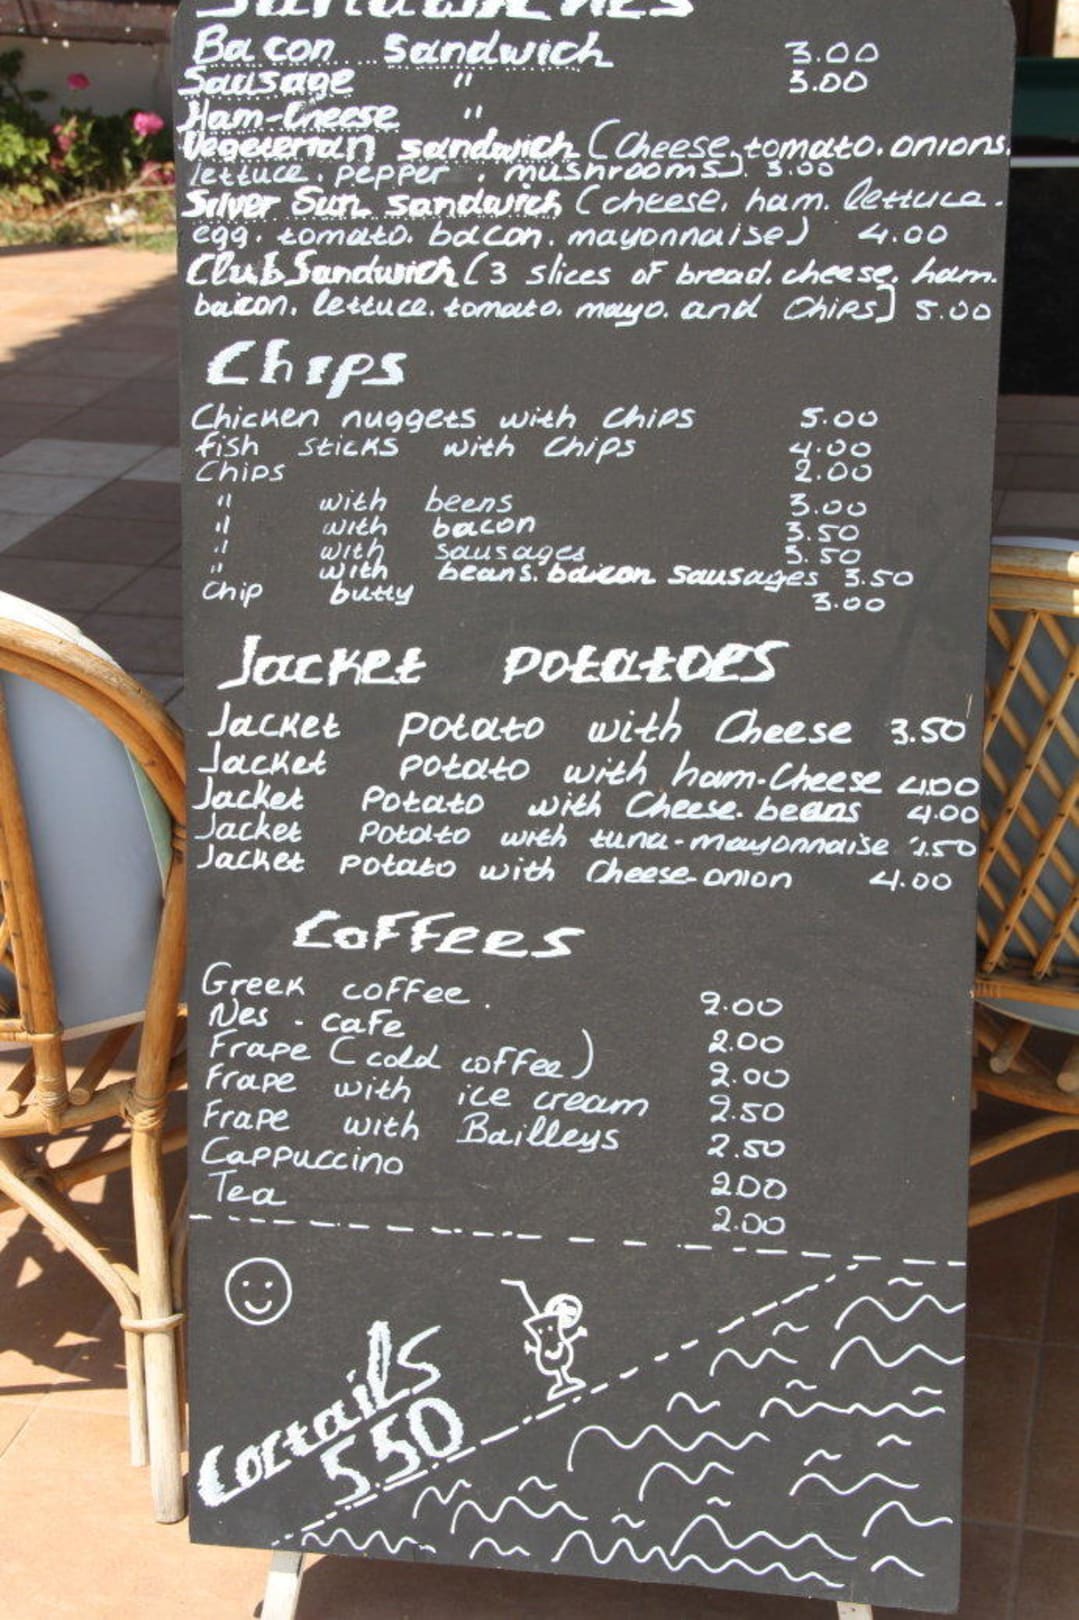 Sandwiches
Bacon Sandwich 3.00
Sausage " 3.00
Ham-Cheese "
Vegeterian sandwich (Cheese, tomato. onions.
lettuce. pepper. mushrooms). 3.00
Silver Sun sandwich (cheese. ham. lettuce.
egg. tomato. bacon. mayonnaise) 4.00
Club Sandwich (3 slices of bread. cheese. ham.
bacon. lettuce. tomato. mayo. and Chips) 5.00
Chips
Chicken nuggets with Chips 5.00
fish sticks with Chips 4.00
Chips 2.00
" with beens 3.00
" with bacon 3.50
" with sausages 3.50
" with beans. bacon sausages 3.50
Chip butty 3.00
Jacket potatoes
Jacket potato with Cheese 3.50
Jacket potato with ham-Cheese 4.00
Jacket Potato with Cheese. beans 4.00
Jacket potato with tuna-mayonnaise
Jacket potato with Cheese-onion 4.00
Coffees
Greek coffee. 2.00
Nes-cafe 2.00
Frape (cold coffee) 2.00
Frape with ice cream 2.50
Frape with Bailleys 2.50
Cappuccino 200
Tea 2.00
Coctails
5.50